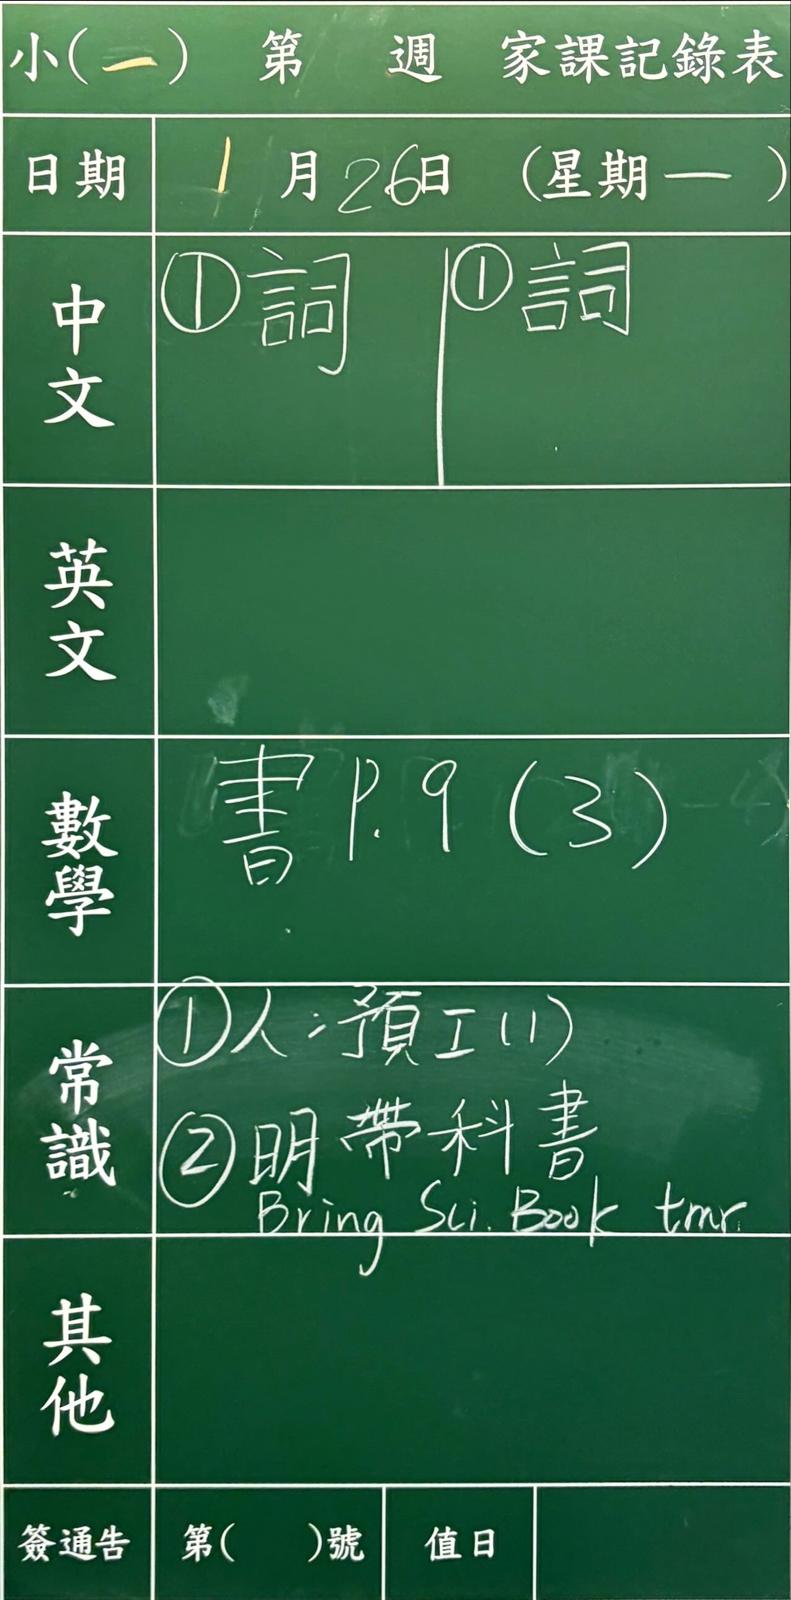 小(一) 第 週 家課記錄表
日期 1月26日 (星期一)
中文 ①詞 ①詞
英文
數學 書 P.9 (3)
常識 ①人:預工(1)
②明帶科書
Bring Sci. Book tmr.
其他
簽通告 第( )號 值日